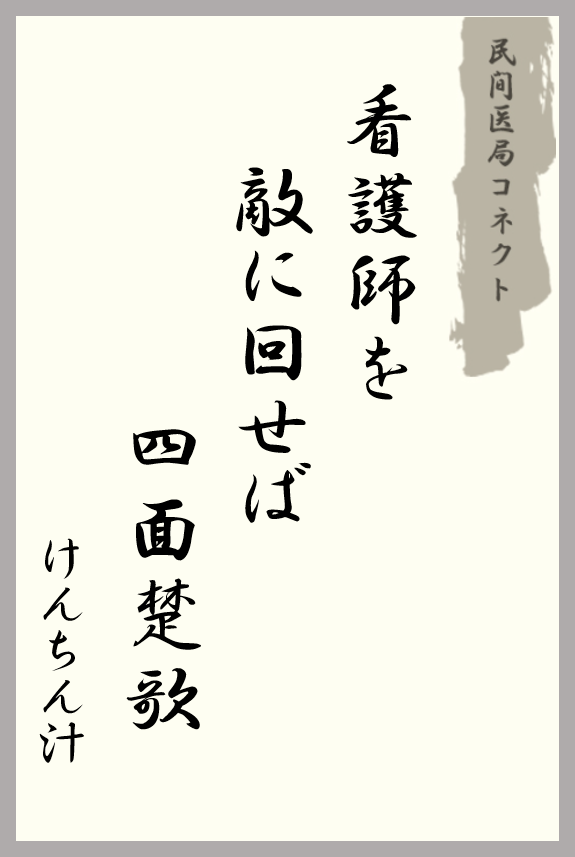 民間医局コネクト
看護師を
敵に回せば
四面楚歌
けんちん汁